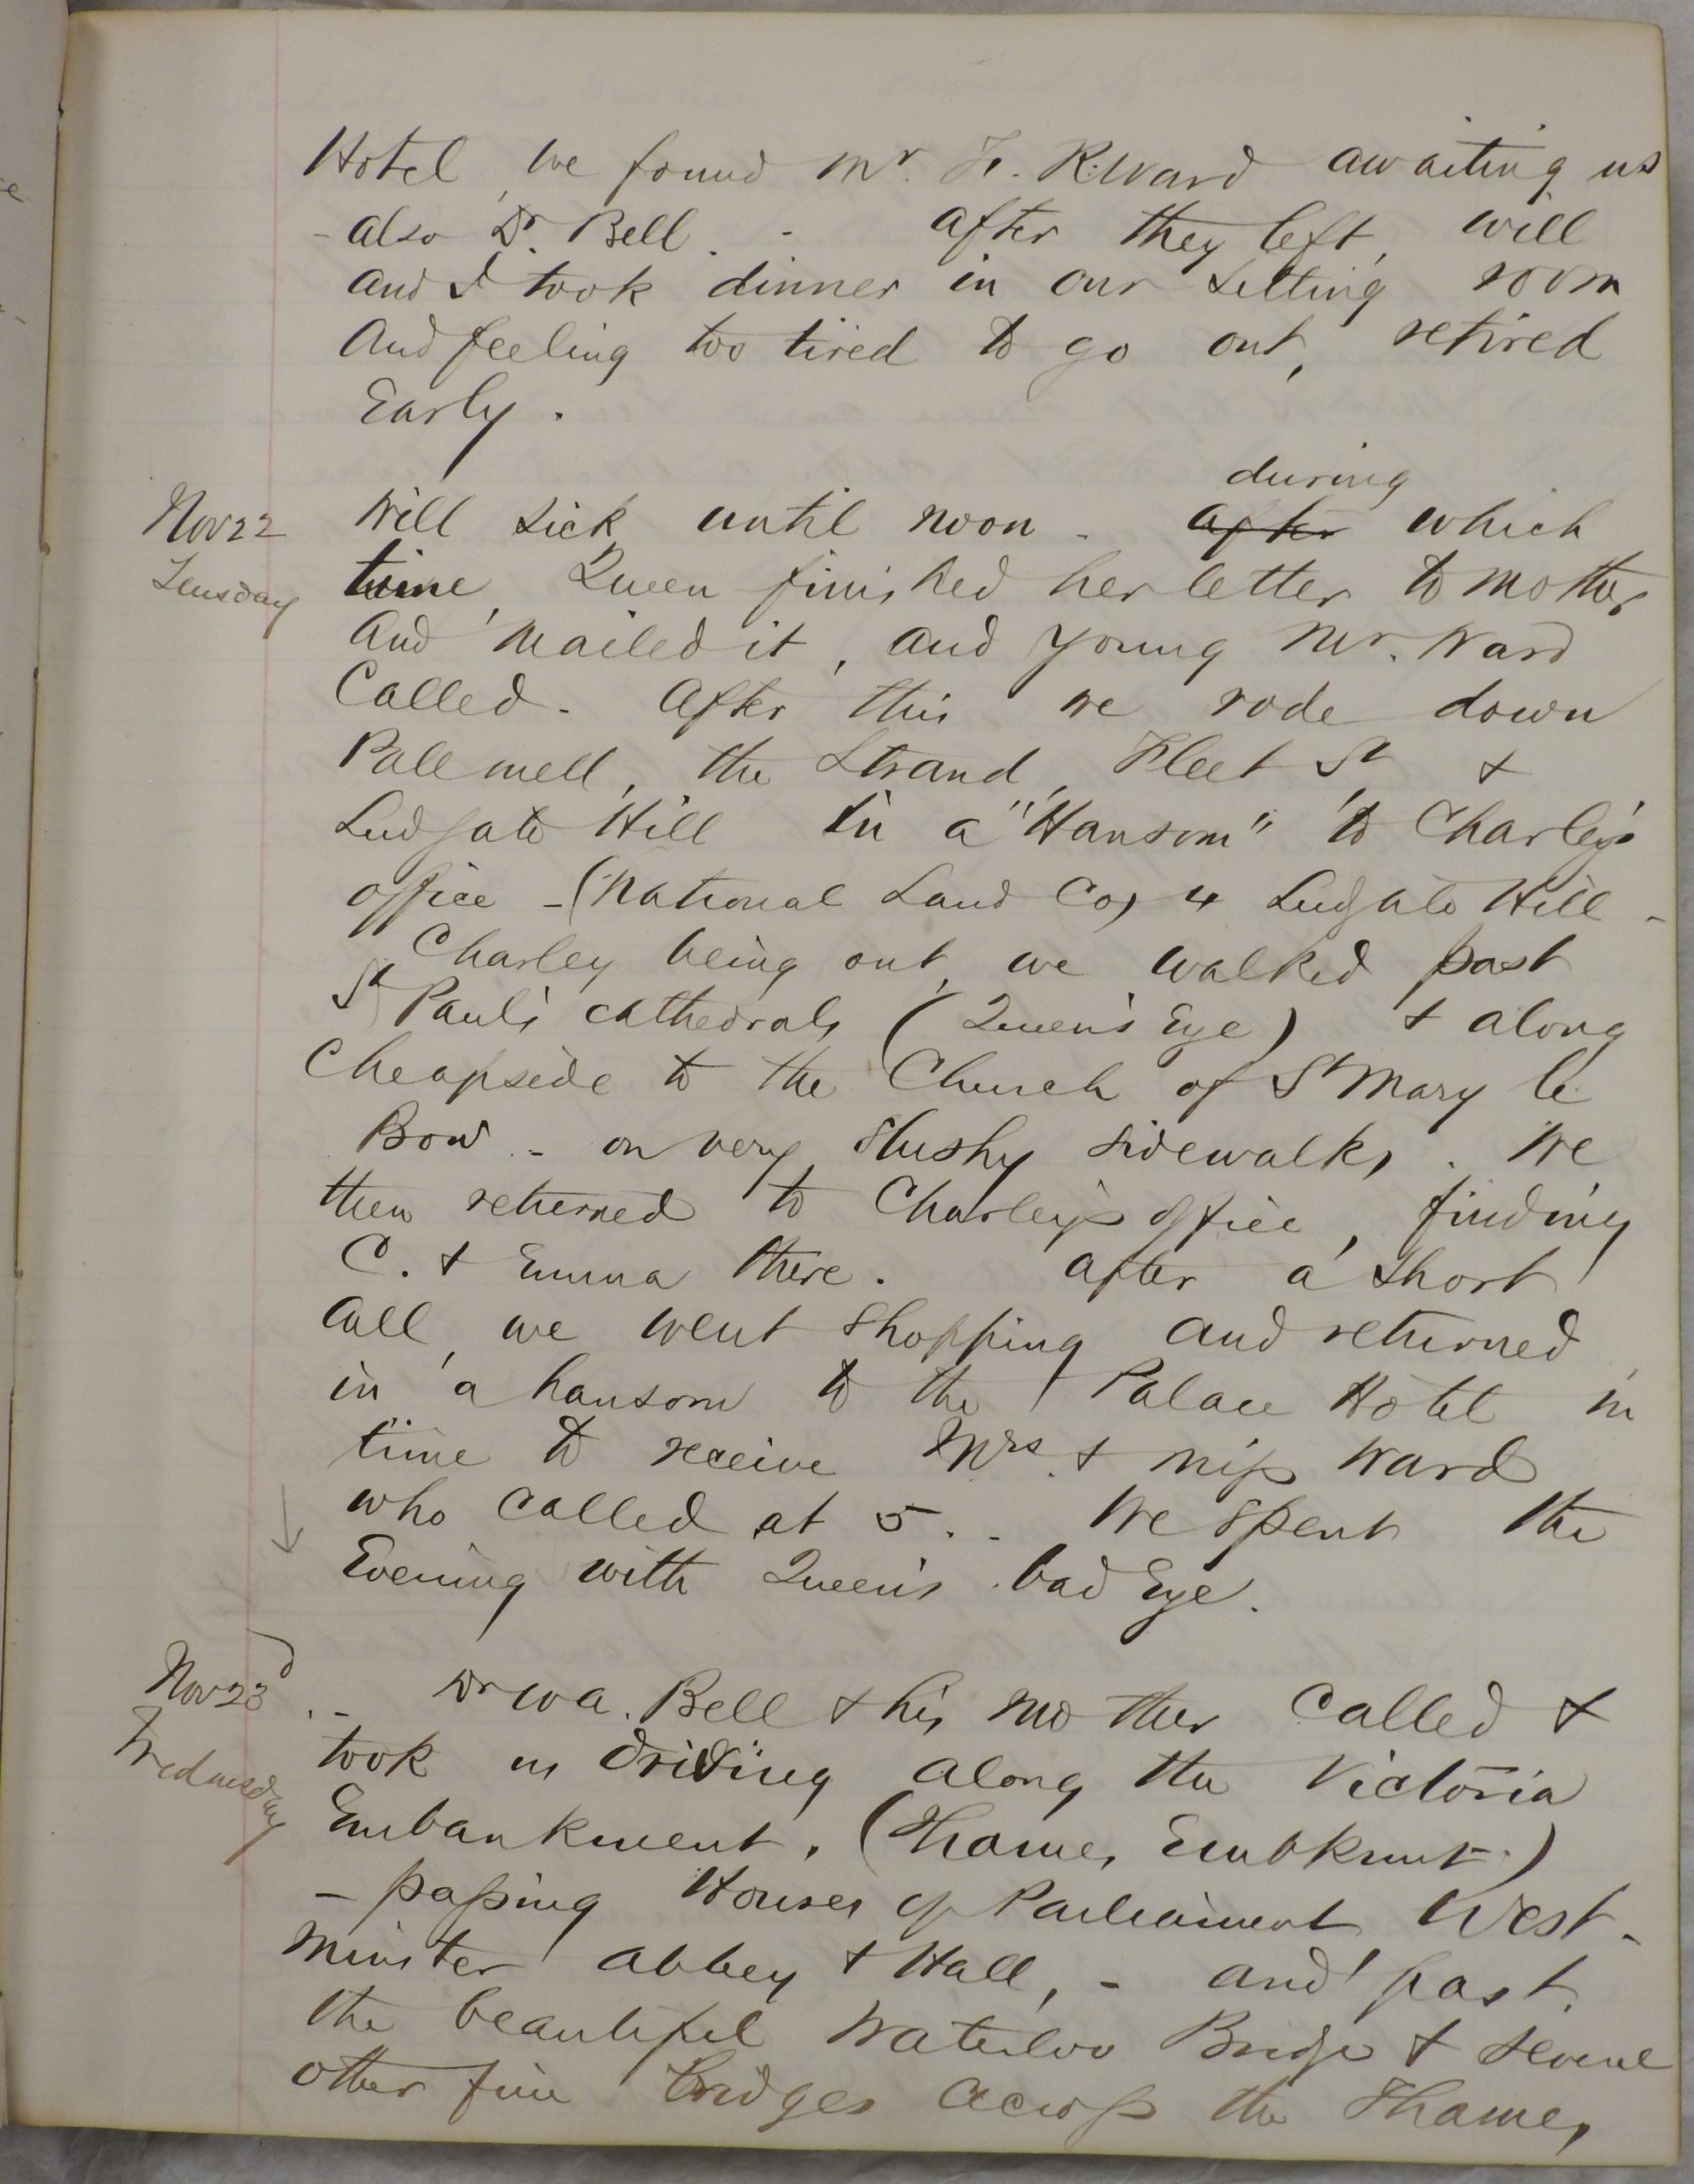 Hotel, we found Mr. F. R. Ward awaiting us
- also Dr. Bell. - after they left, will
and I took dinner in our sitting room
and feeling too tired to go out, retired
Early.
during
Nov 22 Will sick until noon - after which
Tuesday time, Queen finished her letter to mother
and mailed it, and young Mr. Ward
Called. After this we rode down
Pall mell, the Strand, Fleet St &
Ludgate Hill in a "Hansom" to Charley's
office - (National Land Co, 4 Ludgate Hill -
Charley being out, we walked past
St Paul's cathedral, (Queen's Eye) & along
Cheapside to the Church of St Mary le
Bow - on very slushy sidewalks. We
then returned to Charley's office, finding
C. & Emma there. after a short
call, we went shopping and returned
in a hansom to the Palace Hotel in
time to receive Mrs. & miss Ward
who called at 5. - We spent the
Evening with Queen's bad Eye.
Nov 23d - Dr W A. Bell & his mother called &
Wednesday took us driving along the Victoria
Embankment. (Thames Embkmt.)
- passing Houses of Parliament West-
minster abbey & Hall, - and past
the beautiful Waterloo Bridge & several
other fine bridges across the Thames,